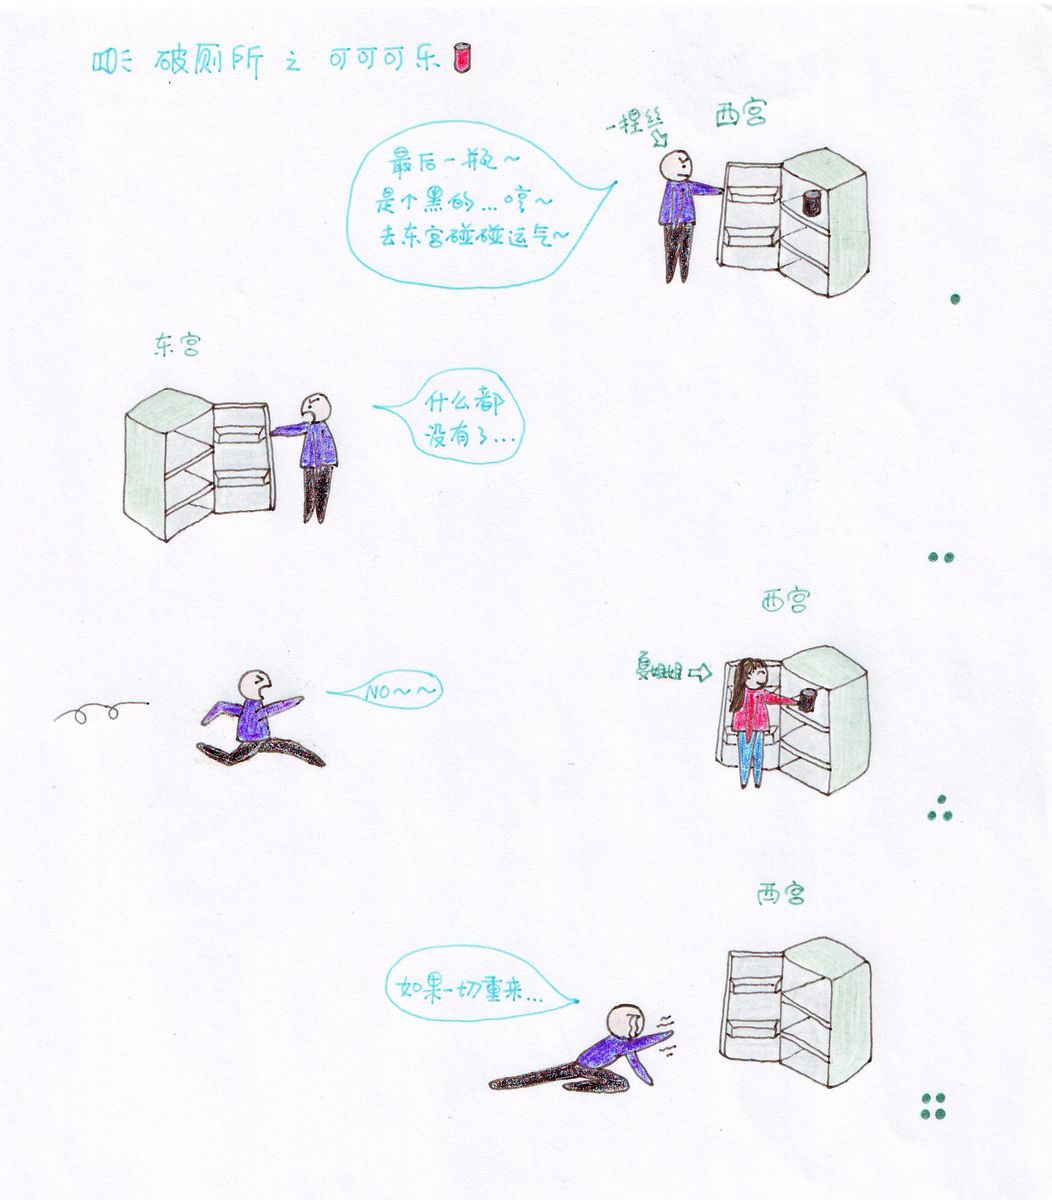 破厕所之可可可乐
西宫
一捏丝
最后一瓶~
是个黑的...哼~
去东宫碰碰运气~
东宫
什么都
没有了...
西宫
夏姐姐
NO~~
西宫
如果一切重来...